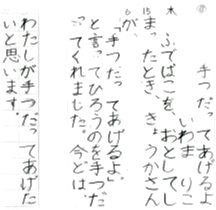 手つだってあげるよ
いわま りこ
ふでばこを、おとしてし
まったとき、きょうかさん
が、
「手つだってあげるよ。」
と言ってひろうのを手つだ
ってくれました。今どは、
わたしが手つだってあげた
いと思います。